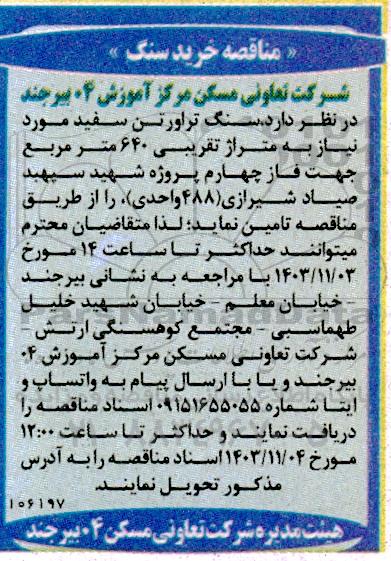 « مناقصه خرید سنگ »
شرکت تعاونی مسکن مرکز آموزش ۰۴ بیرجند
در نظر دارد،سنگ تراورتن سفید مورد
نیاز به متراژ تقریبی ۶۴۰ متر مربع
جهت فاز چهارم پروژه شهید سپهبد
صیاد شیرازی(۴۸۸واحدی)، را از طریق
مناقصه تامین نماید؛ لذا متقاضیان محترم
میتوانند حداکثر تا ساعت ۱۴ مورخ
۱۴۰۳/۱۱/۰۳ با مراجعه به نشانی بیرجند
- خیابان معلم - خیابان شهید خلیل
طهماسبی - مجتمع کوهسنگی ارتش -
شرکت تعاونی مسکن مرکز آموزش ۰۴
بیرجند و یا با ارسال پیام به واتساپ و
ایتا شماره ۰۹۱۵۱۶۵۵۰۵۵ اسناد مناقصه را
دریافت نمایند و حداکثر تا ساعت ۱۲:۰۰
مورخ ۱۴۰۳/۱۱/۰۴ اسناد مناقصه را به آدرس
مذکور تحویل نمایند.
۱۰۶۱۹۷
هیئت مدیره شرکت تعاونی مسکن ۰۴ بیرجند